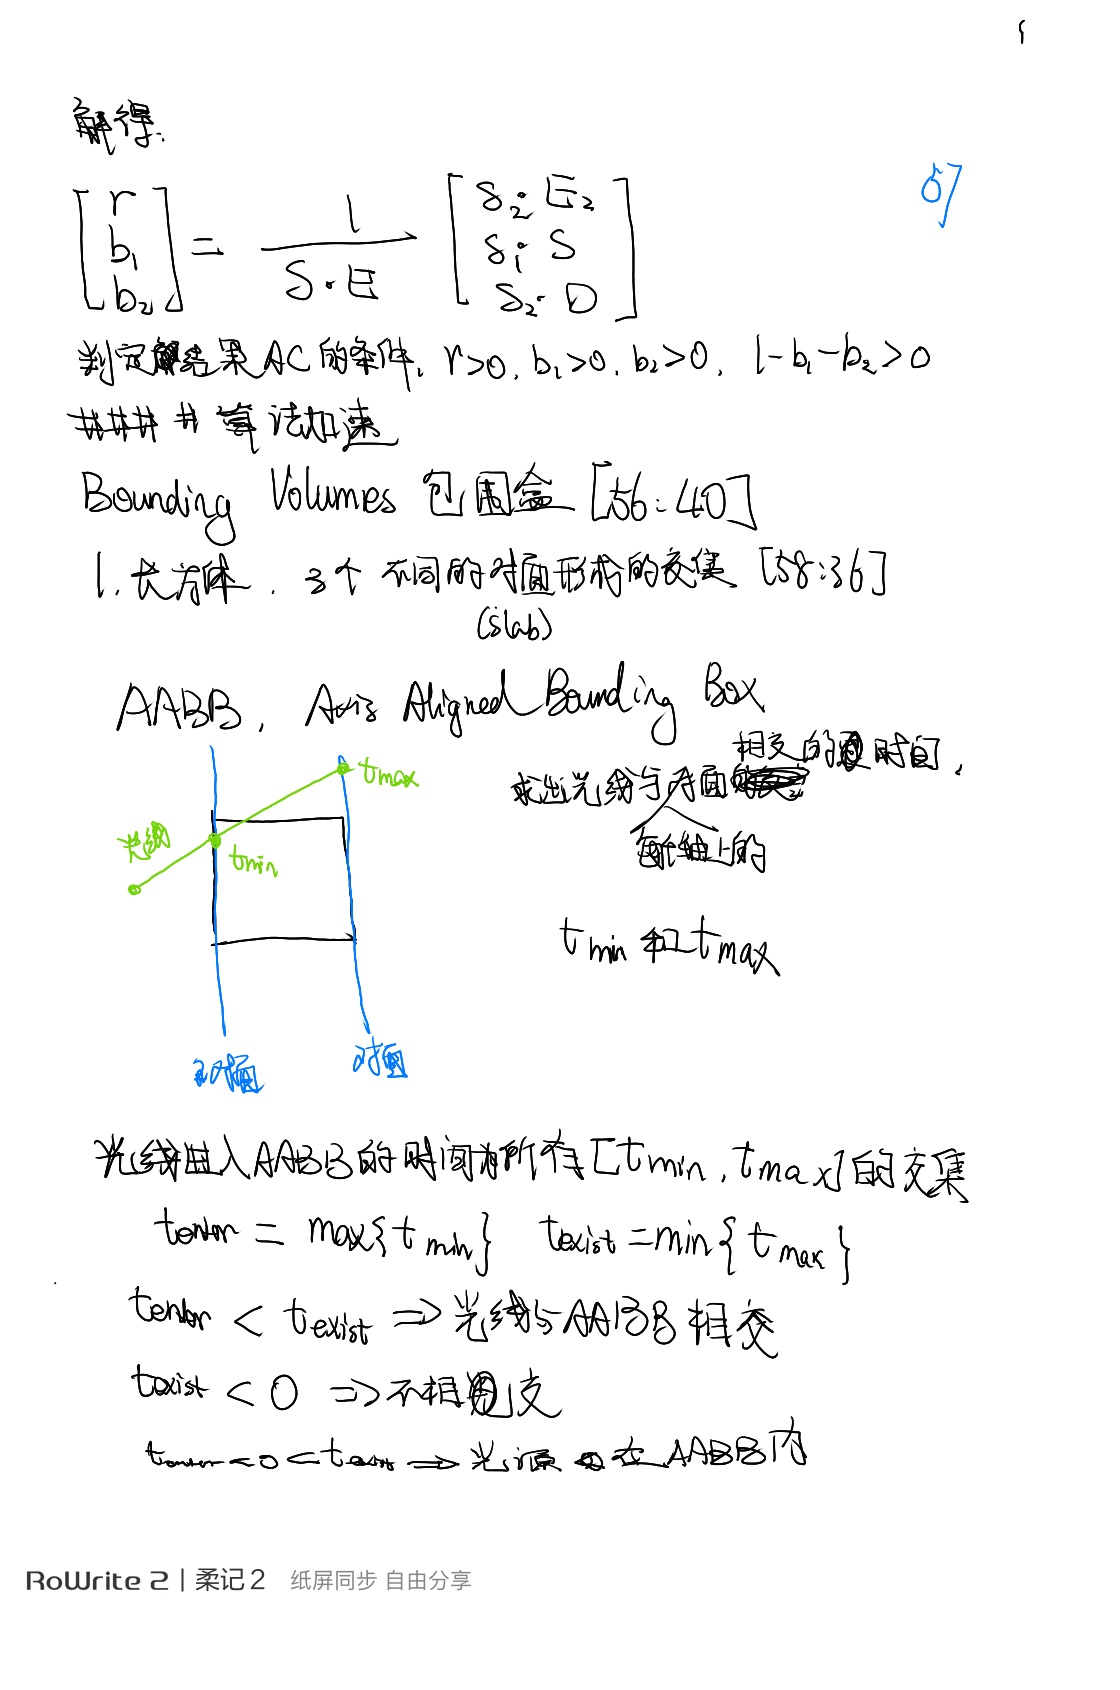 解得:
57
[r b₁ b₂] = 1 / S·E [S₂·E₂ S₁·S S₂·D]
判定解结果AC的条件, r>0, b₁>0, b₂>0, 1-b₁-b₂>0
#### 算法加速
Bounding Volumes 包围盒 [56:40]
1. 长方体, 3个不同的对面形成的交集 [58:36]
(slab)
AABB, Axis Aligned Bounding Box
求出光线与对面相交的时间,
每个轴上的
tmin 和 tmax
tmax
光线
tmin
对面
对面
光线进入AABB的时间为所有[tmin, tmax]的交集
tenter = max{tmin} texist = min{tmax}
tenter < texist => 光线与AABB相交
texist < 0 => 不相交
tenter < 0 < texist => 光源在AABB内
RoWrite 2 | 柔记 2 纸屏同步 自由分享